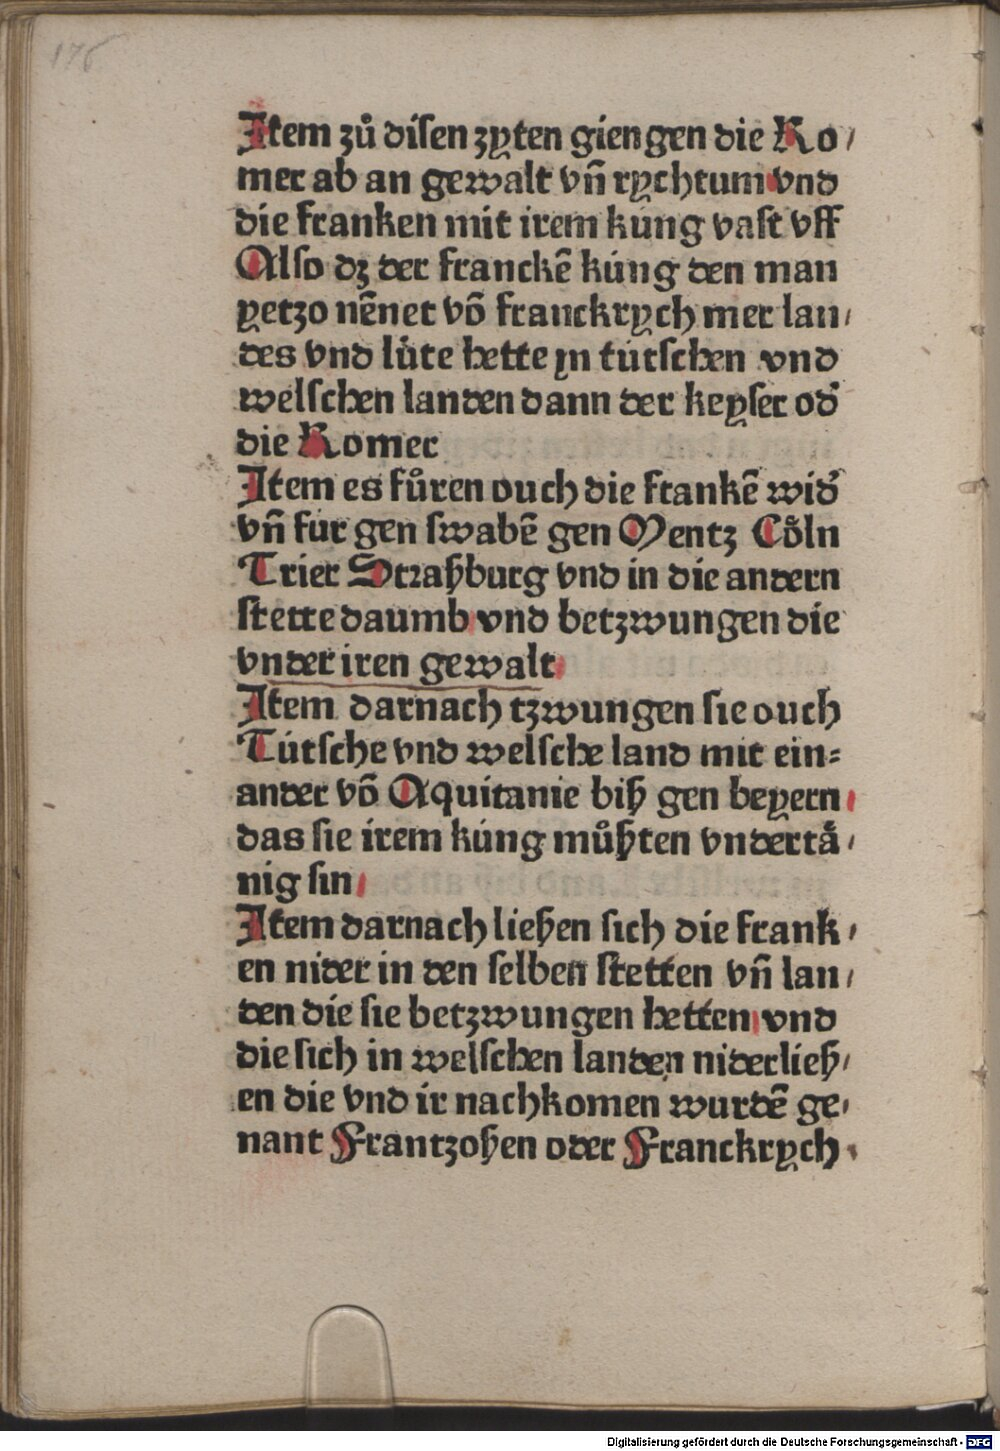 176
Item zů disen zyten giengen die Ro⸗
mer ab an gewalt vñ rychtum vnd
die franken mit irem kúng vast vff
Also dz der franckē kúng den man
yetzo nēnet vō franckrych mer lan⸗
des vnd lúte hette yn tútschen vnd
welschen landen dann der keyser od̕
die Romer
Item es fůren ouch die frankē wid̕
vñ fúr gen swabē gen Mentz Cöln
Trier Straßburg vnd in die andern
stette daumb vnd betzwungen die
vnder iren gewalt
Item darnach tzwungen sie ouch
Tútsche vnd welsche land mit ein⸗
ander vō Aquitanie biß gen beyern
das sie irem kúng můßten vndertå⸗
nig sin
Item darnach ließen sich die frank⸗
en nider in den selben stetten vñ lan⸗
den die sie betzwungen hetten vnd
die sich in welschen landen niderließ⸗
en die vnd ir nachkomen wurdē ge⸗
nant Frantzoßen oder Franckrych
Digitalisierung gefördert durch die Deutsche Forschungsgemeinschaft - DFG